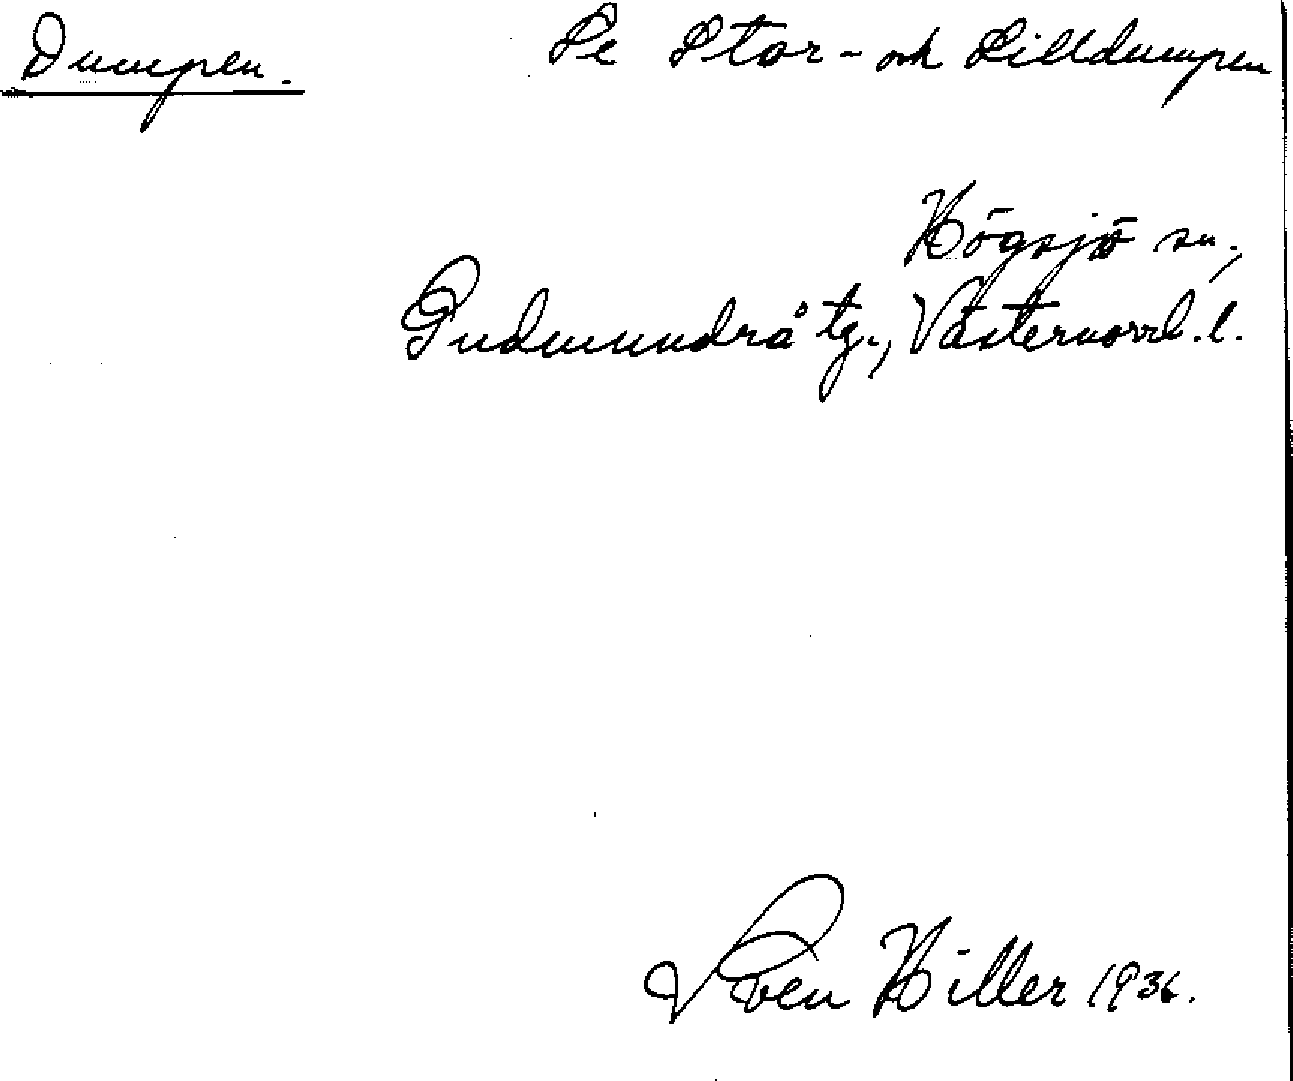 Dumpen. Se Stor- och Lilldumpen
Högsjö sn.,
Gudmundrå tg., Västernorrl. l.
Sven Hiller 1936.